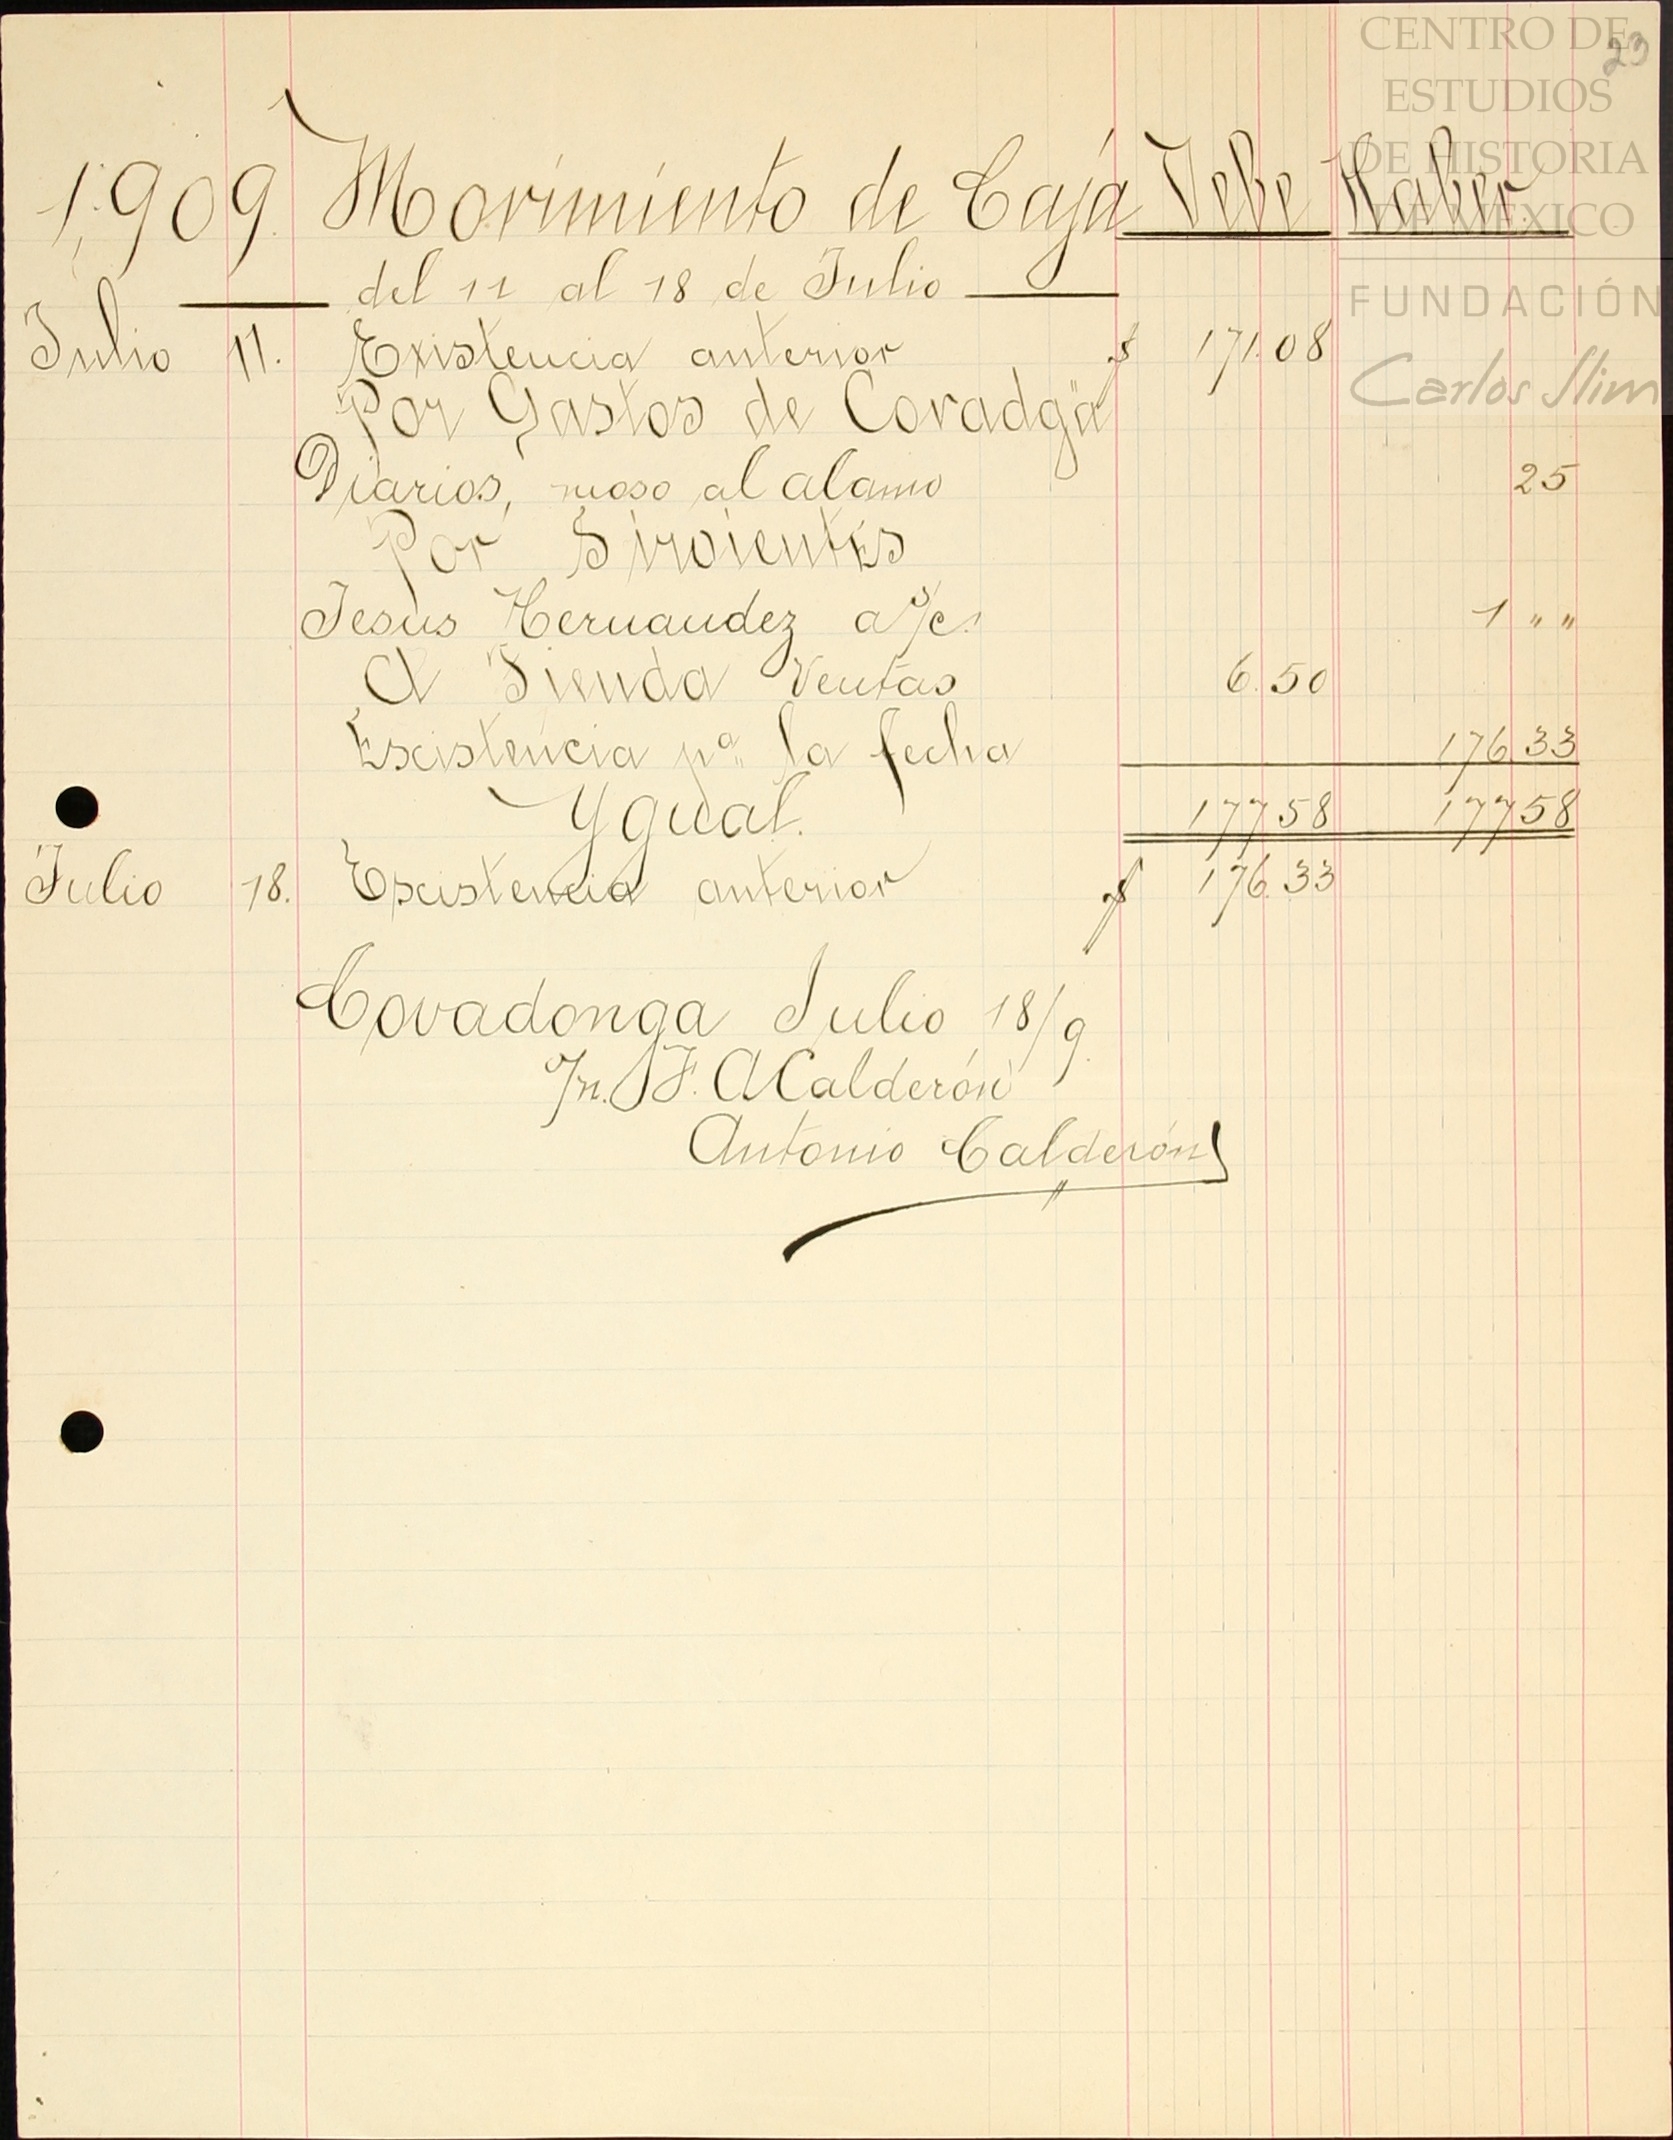 CENTRO DE
ESTUDIOS
DE HISTORIA
DE MÉXICO
FUNDACIÓN
Carlos Slim
23
1,909. Movimiento de Caja Debe Haber.
del 11 al 18 de Julio
Julio 11. Existencia anterior $ 171.08
Por Gastos de Covadga
Diarios, moso al alamo 25
Por Sirvientes
Jesus Hernandez a s/c. 1 " "
A Tienda Ventas 6.50
Escistencia pa. la fecha 176.33
Ygual. 177 58 177 58
Julio 18. Escistencia anterior $ 176.33
Covadonga Julio 18/9.
F. A Calderón
Antonio Calderón